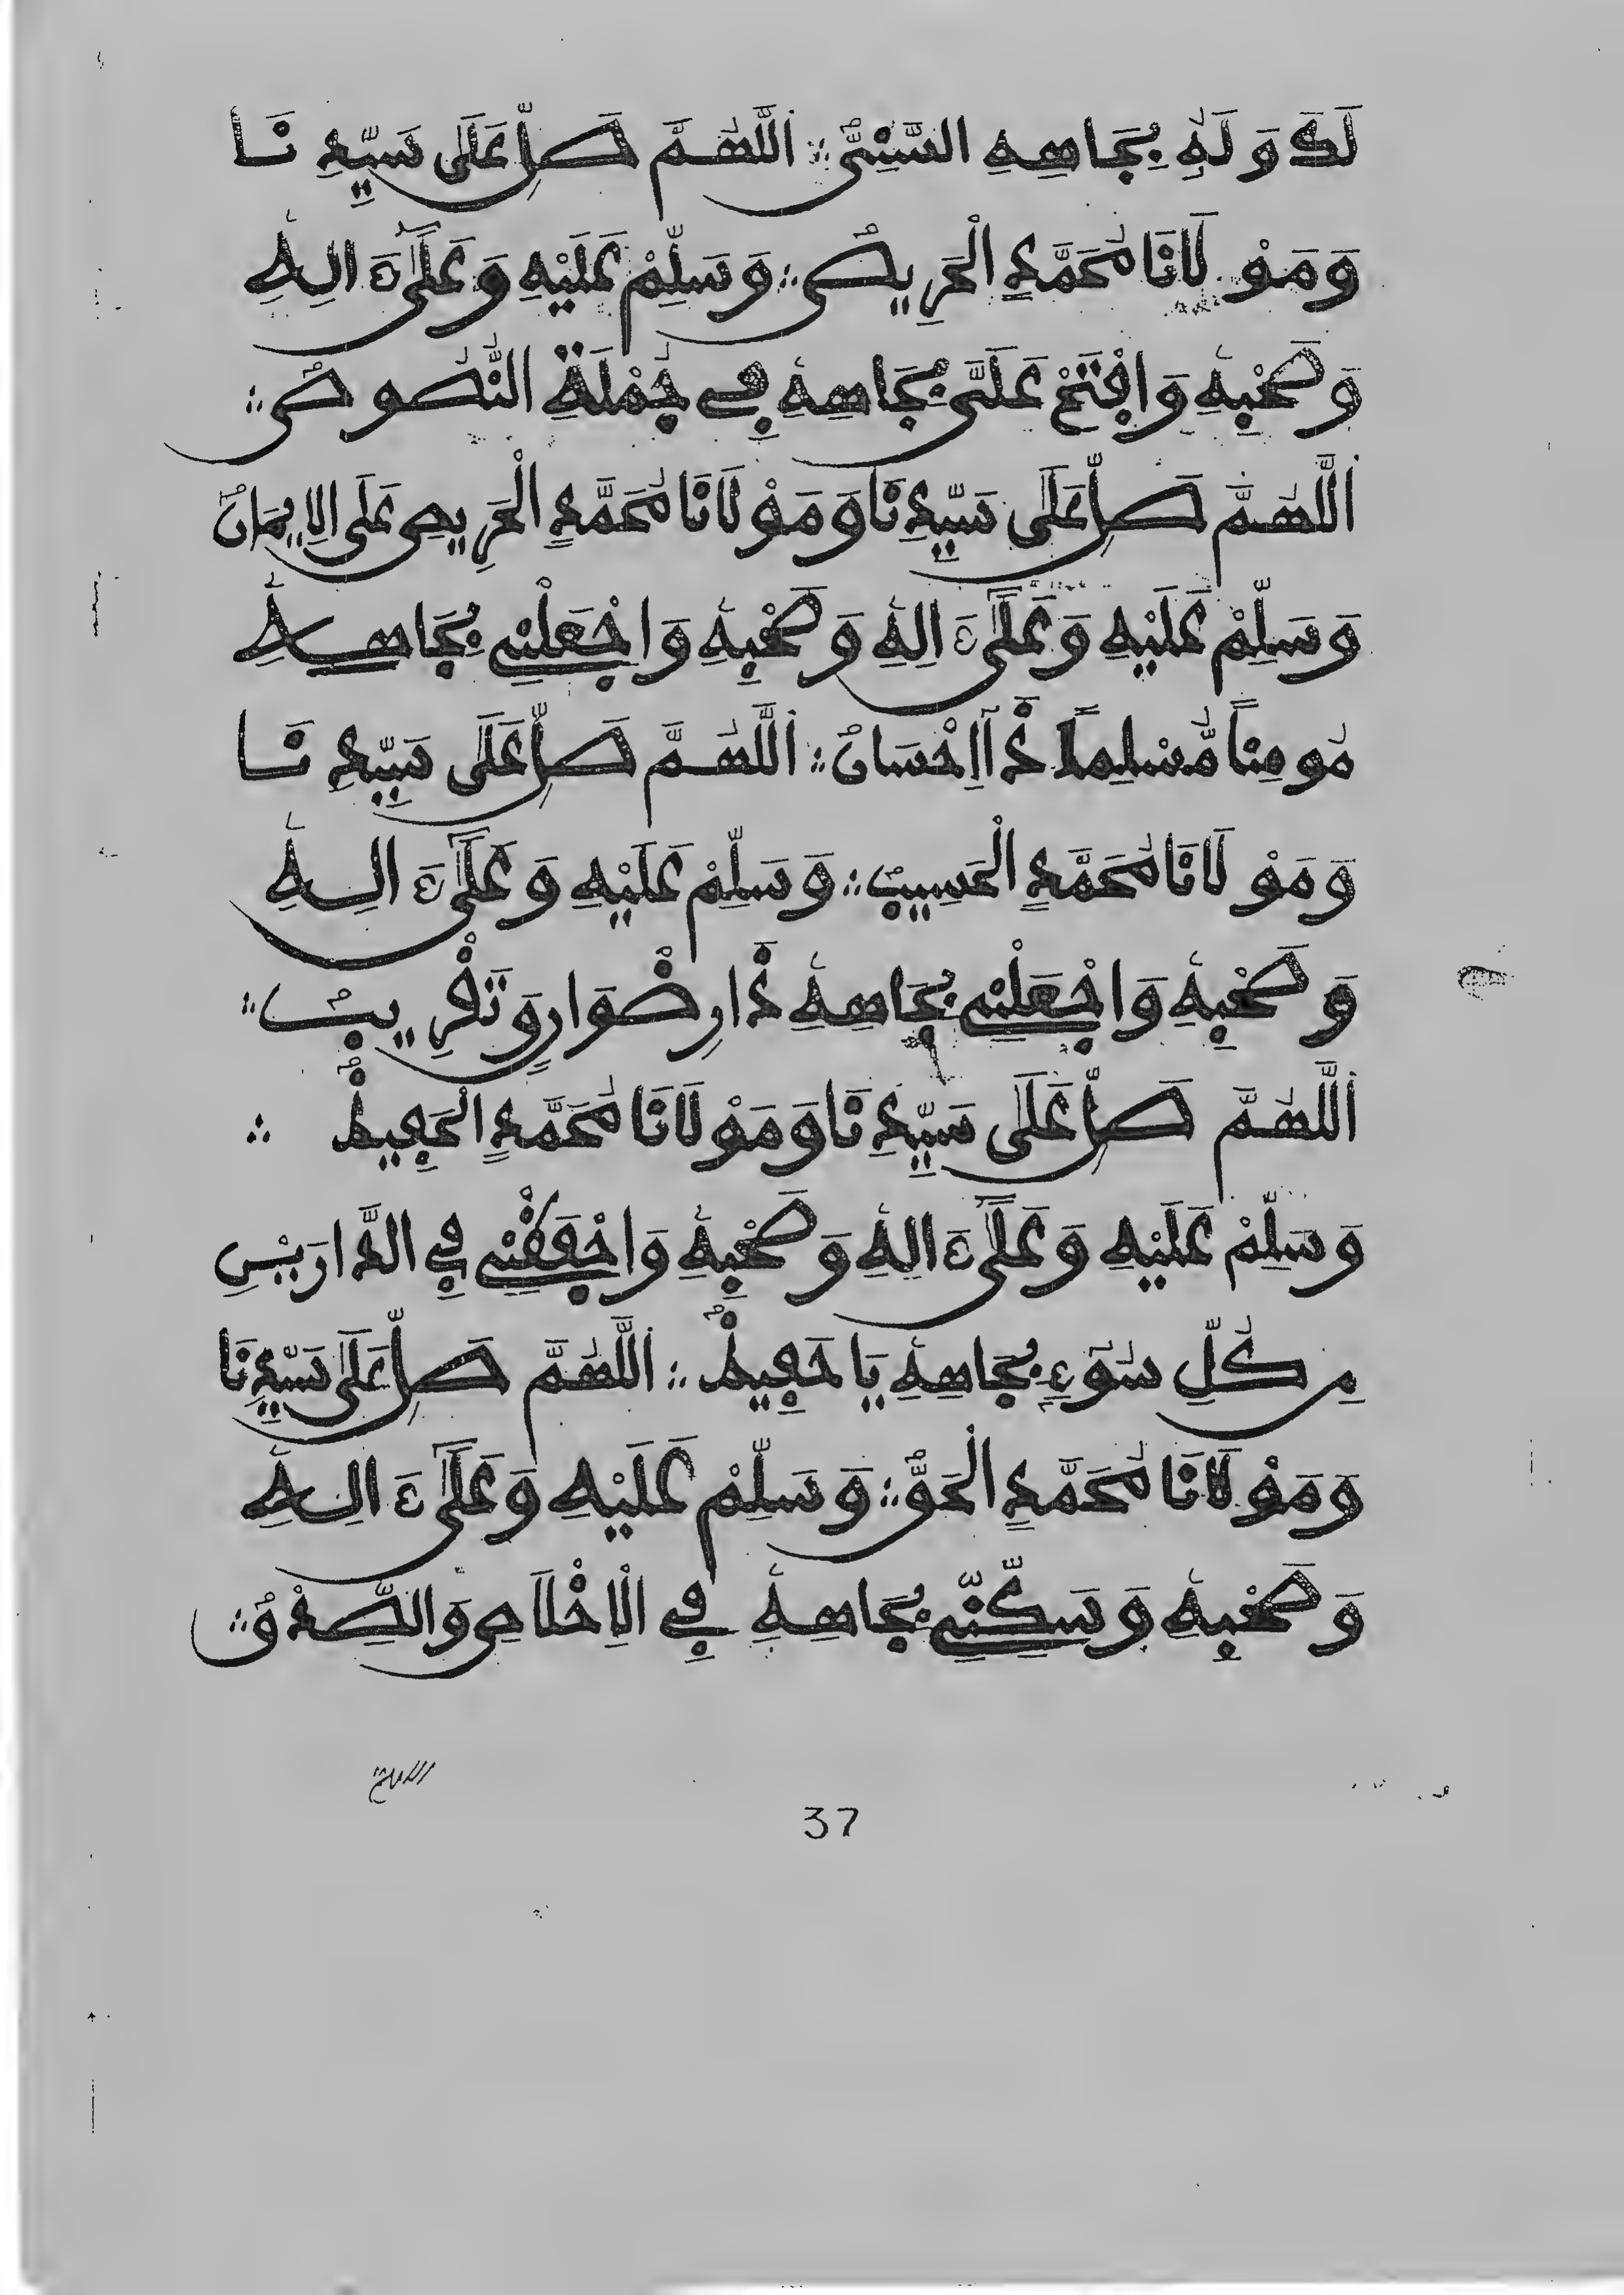 لَكَ وَلَهُ بِجَاهِهِ السَّنِىِّ ؞ اَللَّهُمَّ صَلِّ عَلَى سَيِّدِنَا
وَمَوْلَانَا مُحَمَّدٍ الْحَرِيصِ ؞ وَسَلِّمْ عَلَيْهِ وَعَلَىٰٓ ءَالِهِ
وَصَحْبِهِ وَافْتَحْ عَلَىَّ بِجَاهِهِ فِے جُمْلَةِ النُّصُوصِ ؞
اَللَّهُمَّ صَلِّ عَلَى سَيِّدِنَا وَمَوْلَانَا مُحَمَّدٍ الْحَرِيصِ عَلَى الِايمَانِ
وَسَلِّمْ عَلَيْهِ وَعَلَىٰٓ ءَالِهِ وَصَحْبِهِ وَاجْعَلْنِے بِجَاهِهِ
مُومِناً مُّسْلِماً ذَآ إِحْسَانٍ ؞ اَللَّهُمَّ صَلِّ عَلَى سَيِّدِنَا
وَمَوْلَانَا مُحَمَّدٍ الْحَسِيبِ ؞ وَسَلِّمْ عَلَيْهِ وَعَلَىٰٓ ءَالِهِ
وَصَحْبِهِ وَاجْعَلْنِے بِجَاهِهِ ذَا رِضْوَانٍ وَتَقْرِيبٍ ؞
اَللَّهُمَّ صَلِّ عَلَى سَيِّدِنَا وَمَوْلَانَا مُحَمَّدٍ الْحَفِيظِ ؞
وَسَلِّمْ عَلَيْهِ وَعَلَىٰٓ ءَالِهِ وَصَحْبِهِ وَاحْفَظْنِے فِے الدَّارَيْنِ
مِن كُلِّ سُوٓءٍ بِجَاهِهِ يَا حَفِيظُ ؞ اَللَّهُمَّ صَلِّ عَلَى سَيِّدِنَا
وَمَوْلَانَا مُحَمَّدٍ الْحَقِّ ؞ وَسَلِّمْ عَلَيْهِ وَعَلَىٰٓ ءَالِهِ
وَصَحْبِهِ وَسَكِّنِّے بِجَاهِهِ فِے الْإِخْلَاصِ وَالصِّدْقِ ؞
37